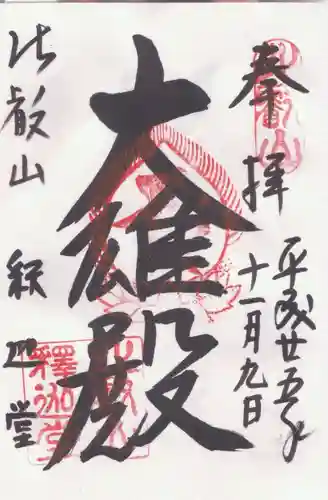 奉拝
平成廿五年
十一月九日
大雄殿
比叡山
釈迦堂
釋迦堂